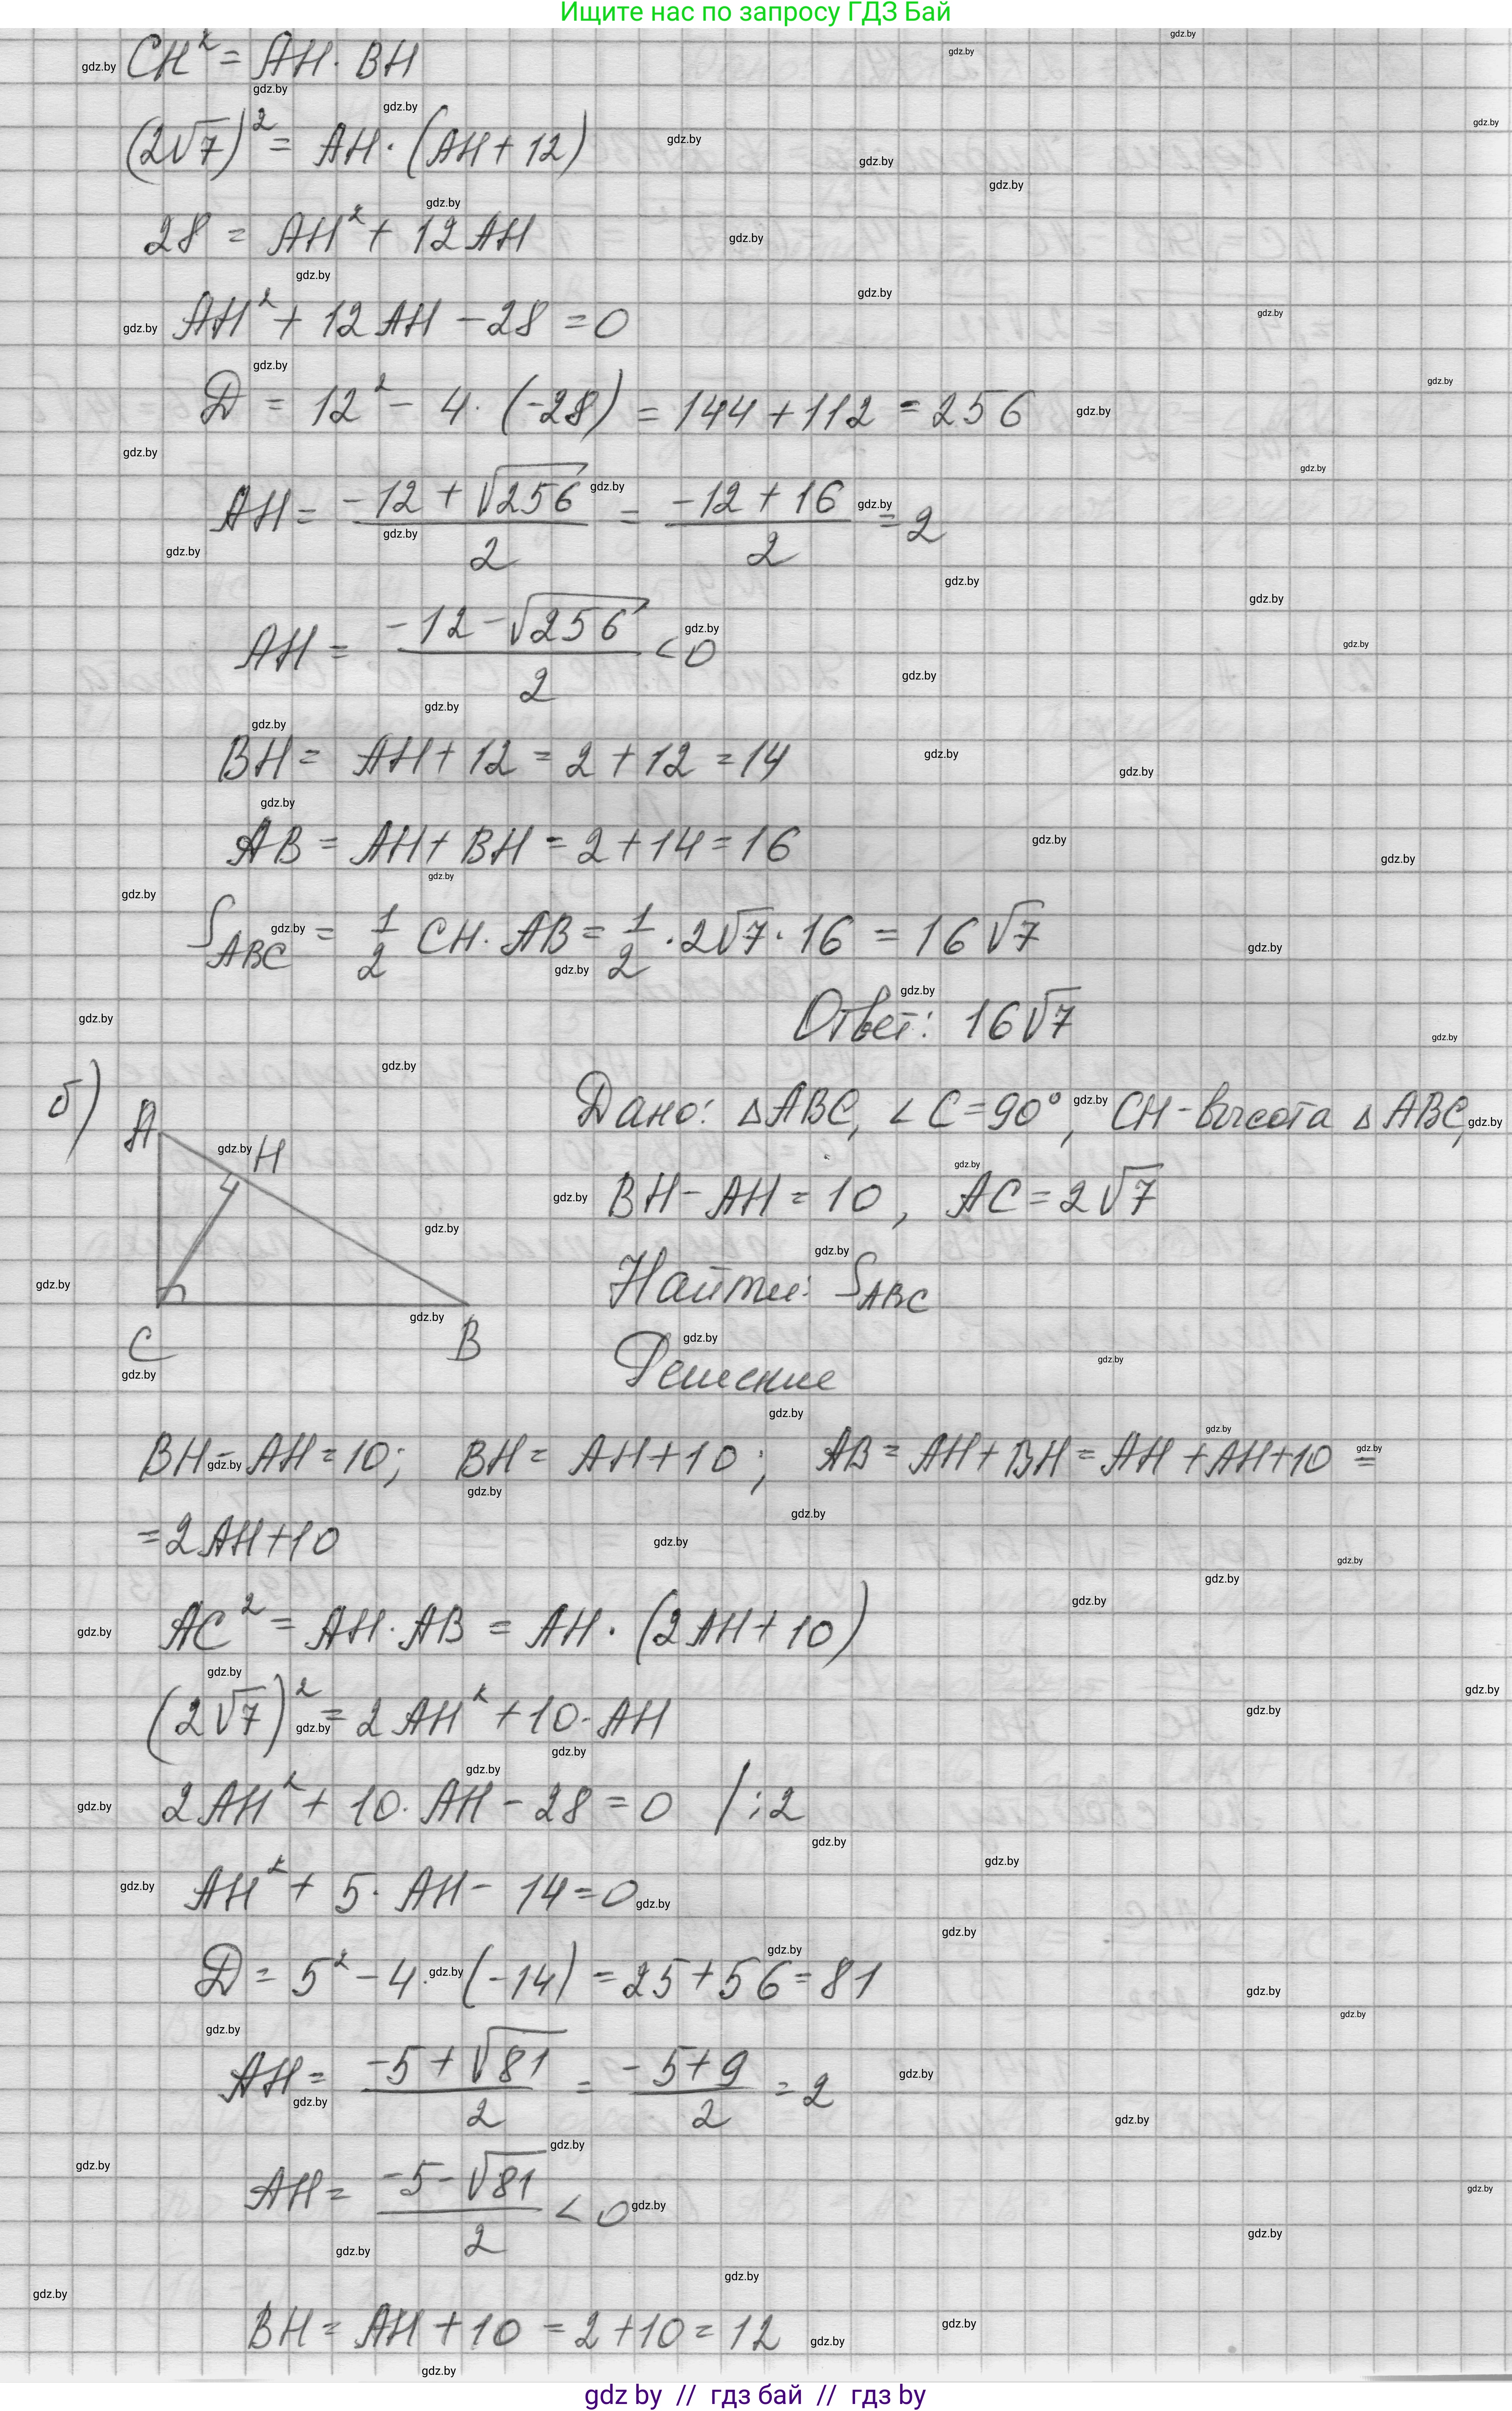 Ищите нас по запросу ГДЗ Бай
CH² = AH · BH
(2√7)² = AH · (AH + 12)
28 = AH² + 12AH
AH² + 12AH - 28 = 0
D = 12² - 4 · (-28) = 144 + 112 = 256
AH = (-12 + √256)/2 = (-12 + 16)/2 = 2
AH = (-12 - √256)/2 < 0
BH = AH + 12 = 2 + 12 = 14
AB = AH + BH = 2 + 14 = 16
S_ABC = 1/2 CH · AB = 1/2 · 2√7 · 16 = 16√7
Ответ: 16√7
б)
A
H
C
B
Дано: △ABC, ∠C = 90°, CH - высота △ABC,
BH - AH = 10, AC = 2√7
Найти: S_ABC
Решение
BH - AH = 10; BH = AH + 10; AB = AH + BH = AH + AH + 10 =
= 2AH + 10
AC² = AH · AB = AH · (2AH + 10)
(2√7)² = 2AH² + 10 · AH
2AH² + 10 · AH - 28 = 0 / :2
AH² + 5 · AH - 14 = 0
D = 5² - 4 · (-14) = 25 + 56 = 81
AH = (-5 + √81)/2 = (-5 + 9)/2 = 2
AH = (-5 - √81)/2 < 0
BH = AH + 10 = 2 + 10 = 12
gdz by // гдз бай // гдз by